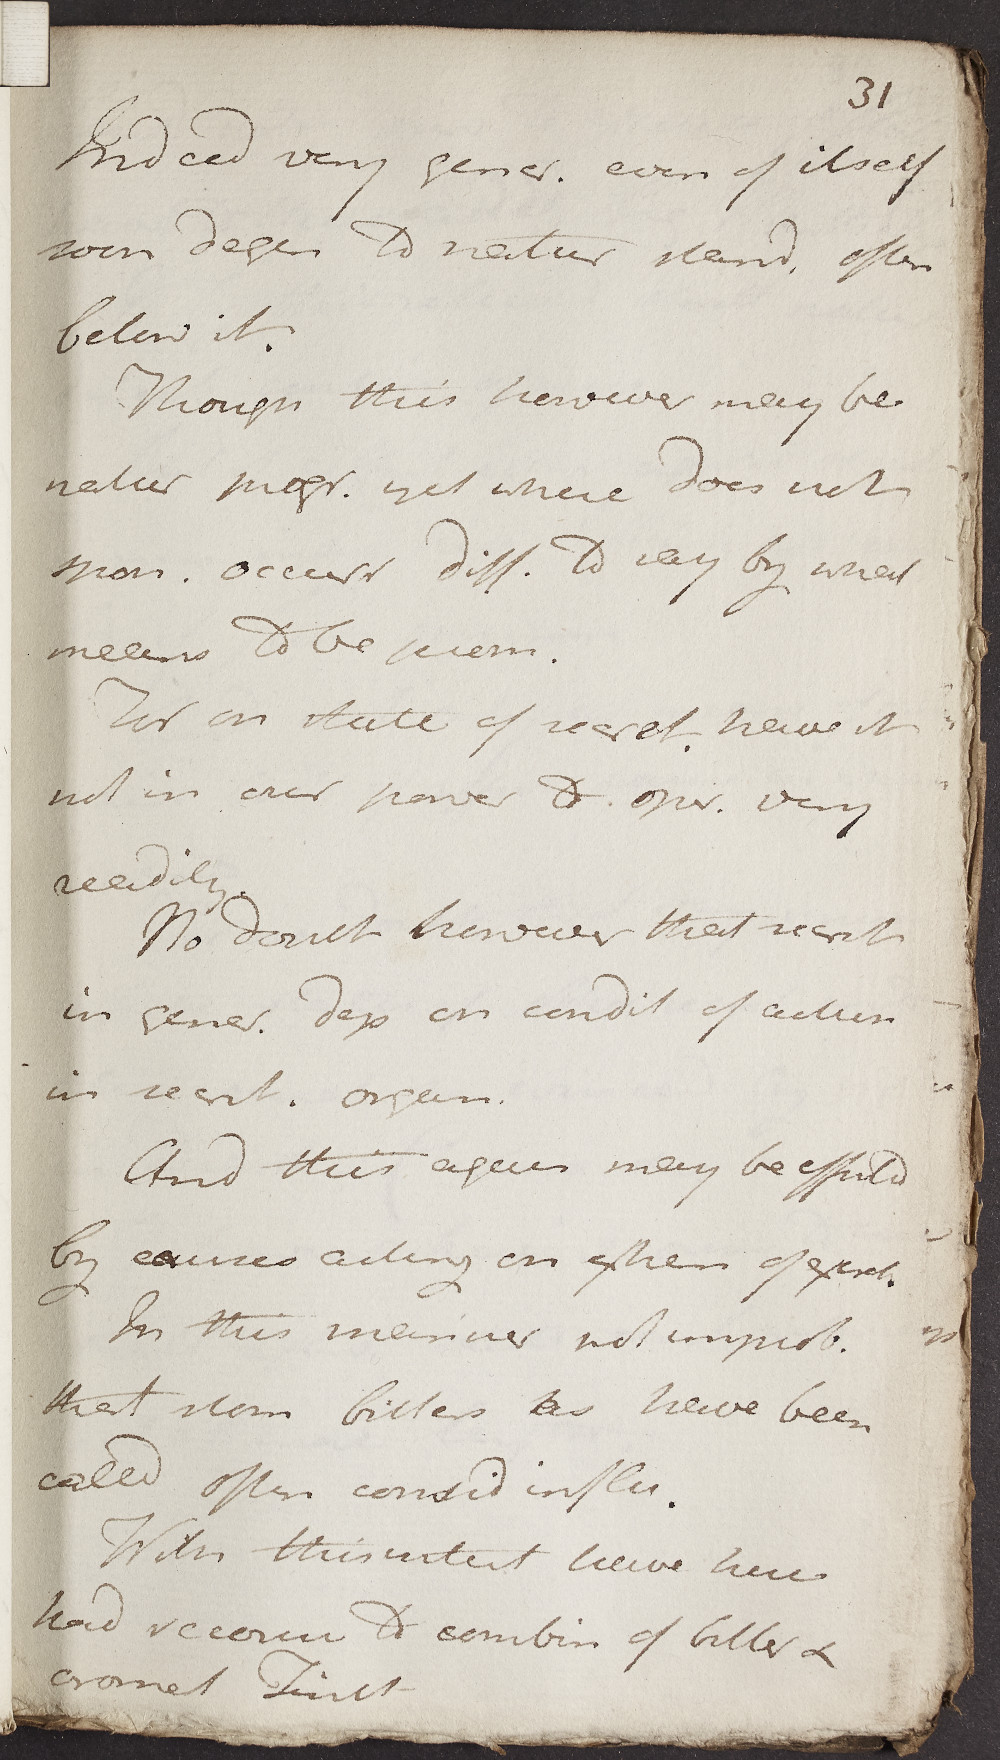 31
Indeed very gener. even of itself
soon degen to natur stand. often
below it.
Though this however may be
natur progr. yet where does not
spon. occurr diff. to say by what
means to be prom.
For on state of secret. have it
not in our power to oper. very
readily.
No doubt however that secret
in gener. dep on condit of action
in secret. organ.
And this again may be effected
by causes acting on other of
In this manner not improb.
that stom bitters as have been
called often consid influ.
With this intent have here
had recour to combin of bitter &
aromat Tinct